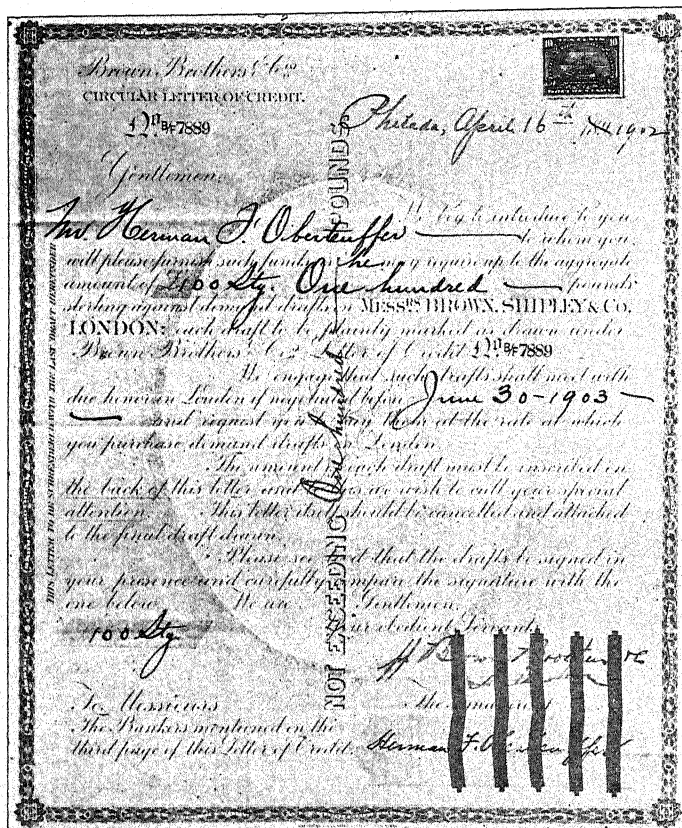 Brown Brothers & Co.
CIRCULAR LETTER OF CREDIT.
£ No B/F 7889
10 10
Philada, April 16th 1902
Gentlemen,
We beg to introduce to you
Mr. Herman F. Oberteuffer
to whom you
will please furnish such funds as he may require up to the aggregate
amount of £100 Stg. One hundred pounds
sterling against demand drafts on MESSRS BROWN, SHIPLEY & CO.
LONDON: each draft to be plainly marked as drawn under
Brown Brothers & Co. Letter of Credit £ No B/F 7889
We engage that such drafts shall meet with
due honor in London if negotiated before June 30-1903
and request you to buy them at the rate at which
you purchase demand drafts on London.
The amount of each draft must be inscribed on
the back of this letter and to this we wish to call your special
attention. This letter itself should be cancelled and attached
to the final draft drawn.
Please see to it that the drafts be signed in
your presence and carefully compare the signature with the
one below. We are Gentlemen,
Your obedient Servants,
100 Stg
Brown Brothers & Co
To Messieurs
The signature of
The Bankers mentioned on the
third page of this Letter of Credit.
Herman F. Oberteuffer
NOT EXCEEDING One hundred POUNDS
THIS LETTER TO BE SURRENDERED WITH THE LAST DRAFT HEREUNDER